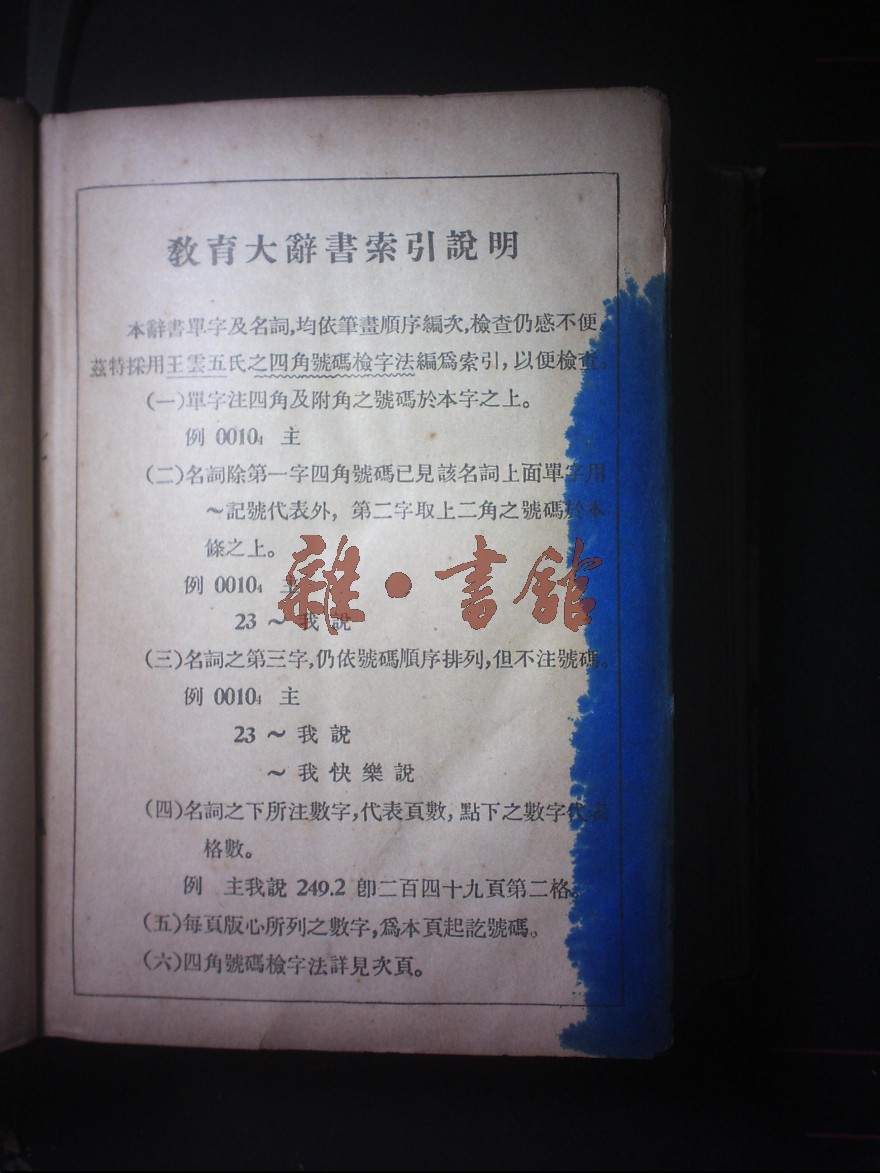 教育大辭書索引說明
本辭書單字及名詞,均依筆畫順序編次,檢查仍感不便。
茲特採用王雲五氏之四角號碼檢字法編爲索引,以便檢查。
(一)單字注四角及附角之號碼於本字之上。
例 0010₄ 主
(二)名詞除第一字四角號碼已見該名詞上面單字用
～記號代表外,第二字取上二角之號碼於本
條之上。
例 0010₄ 主
23 ～我說
雜·書館
(三)名詞之第三字,仍依號碼順序排列,但不注號碼。
例 0010₄ 主
23 ～我說
～我快樂說
(四)名詞之下所注數字,代表頁數,點下之數字代表
格數。
例 主我說 249.2 卽二百四十九頁第二格。
(五)每頁版心所列之數字,爲本頁起訖號碼。
(六)四角號碼檢字法詳見次頁。